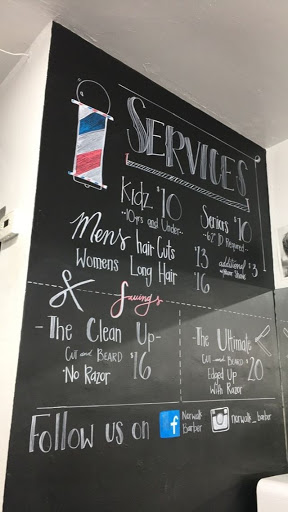 SERVICES
Kidz $10
"10yrs and Under"
Seniors $10
ID Required
Mens hair Cuts $13
additional $3
Womens Long Hair 16
Savings
-The Clean Up-
Cut and BEARD $16
*No Razor
-The Ultimate
Cut and BEARD $20
Edged Up
With Razor
Follow us on
Norwalk
Barber
norwalk_barber